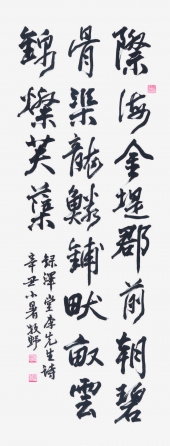 際海金堤郡前朝碧
骨渠龍鱗鋪畎畝雲
錦燦芙蕖
録澤堂李先生詩
辛丑小暑牧野